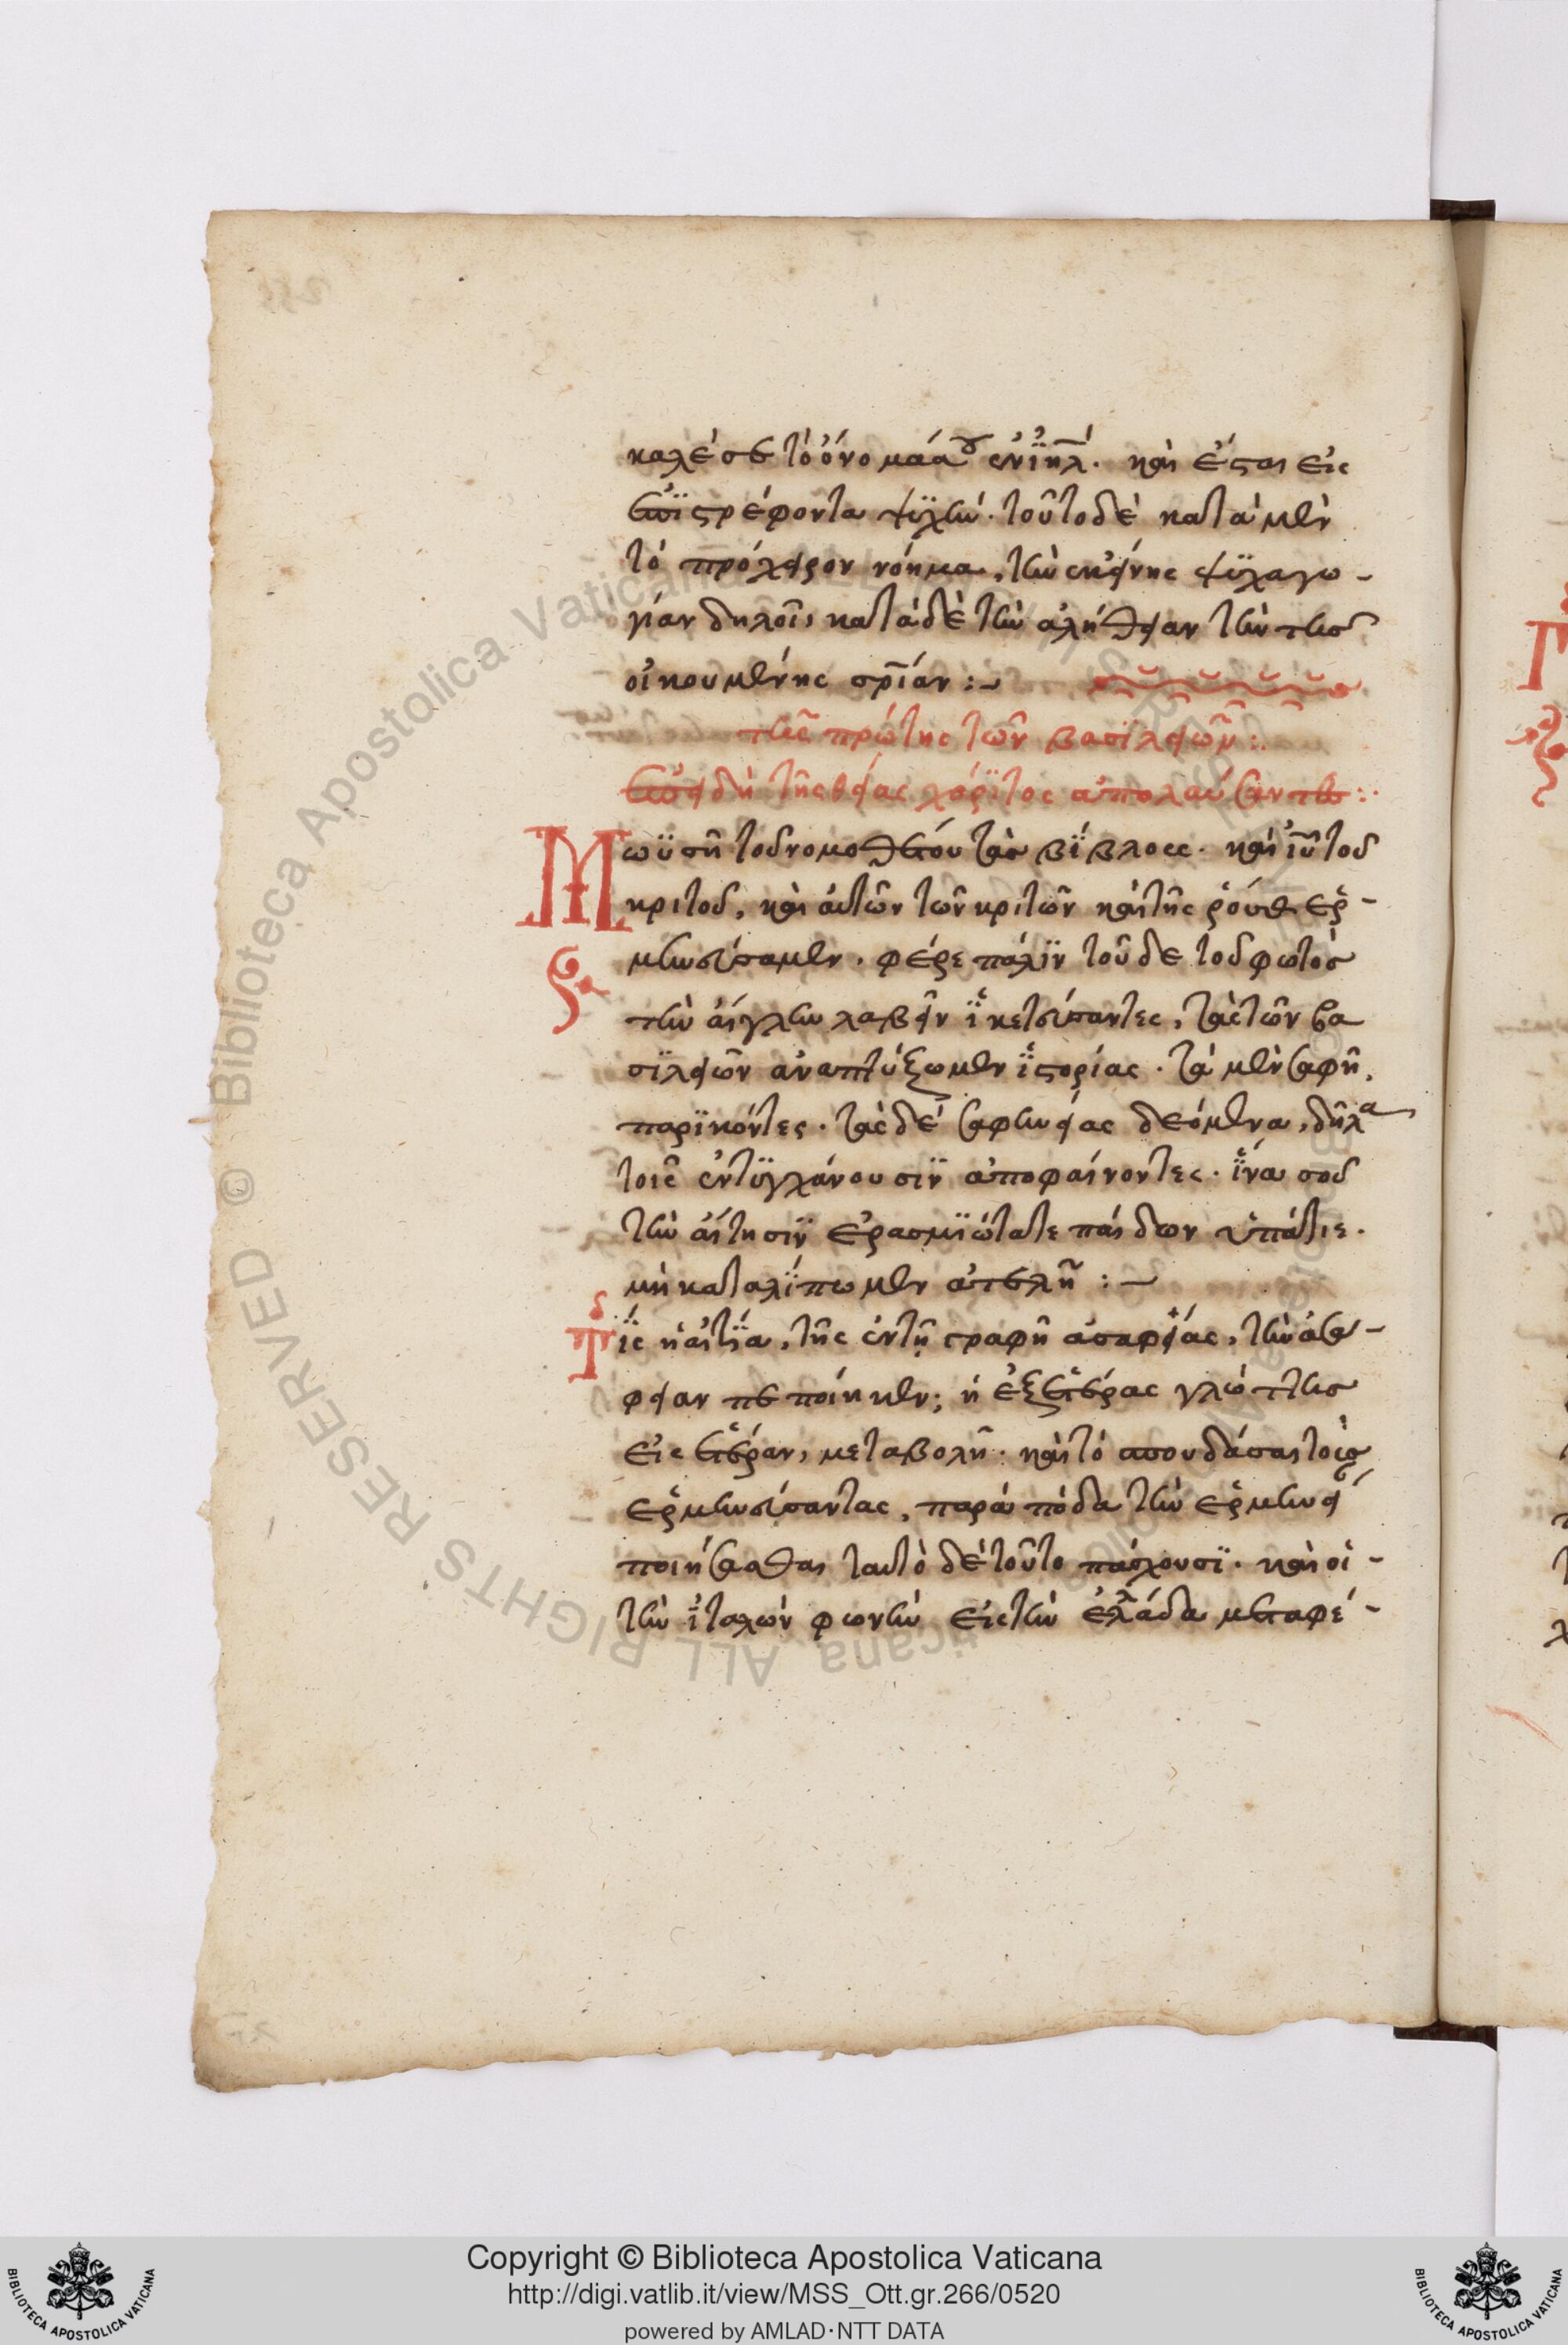 καλέσει τὸ ὄνομα αὐτοῦ ἐν ἰηλ. καὶ ἔσται εἰς
ἐπιστρέφοντα ψυχήν. τοῦτο δὲ κατὰ μὲν
τὸ πρόχειρον νόημα, τὴν ἐκείνης ψυχαγω-
γίαν δηλοῖ, κατὰ δὲ τὴν ἀλήθειαν τὴν τῆς
οἰκουμένης σρίαν :~
τῆς πρώτης τῶν βασιλειῶν :.
τῆς θείας χάριτος
Μωϋσῆ τοῦ νομοθέτου τὰς βίβλους. καὶ ἰυ τοῦ
κριτοῦ, καὶ αὐτῶν τῶν κριτῶν καὶ τῆς ῥοὺθ ἑρ-
μηνεύσαμεν. φέρε πάλιν τοῦδε τοῦ φωτὸς
τὴν αἴγλην λαβεῖν ἱκετεύσαντες, τὰς τῶν βα
σιλειῶν ἀναπτύξωμεν ἱστορίας. τὰ μὲν σαφῆ,
παριόντες. τὰς δὲ σαφηνείας δεόμενα, δῆλα
τοῖς ἐντυγχάνουσιν ἀποφαίνοντες. ἵνα σοῦ
τὴν αἴτησιν ἐρασμιώτατε παίδων ὑπάτιε.
μὴ καταλίπωμεν ἀτελῆ : ~
Τίς ἡ αἰτία, τῆς ἐν τῇ γραφῇ ἀσαφείας, τὴν ἀσα-
φειαν πεποίηκεν; ἡ ἐξ ἑτέρας γλώττης
εἰς ἑτέραν, μεταβολή. καὶ τὸ σπουδάσαι τοὺς
ἑρμηνεύσαντας, παρὰ πόδα τὴν ἑρμηνεί
ποιήσασθαι ταυτὸ δὲ τοῦτο πάσχουσι. καὶ οἱ -
τὴν ἰταλῶν φωνὴν εἰς τὴν ἑλλάδα μεταφέ-
Copyright © Biblioteca Apostolica Vaticana
http://digi.vatlib.it/view/MSS_Ott.gr.266/0520
powered by AMLAD·NTT DATA